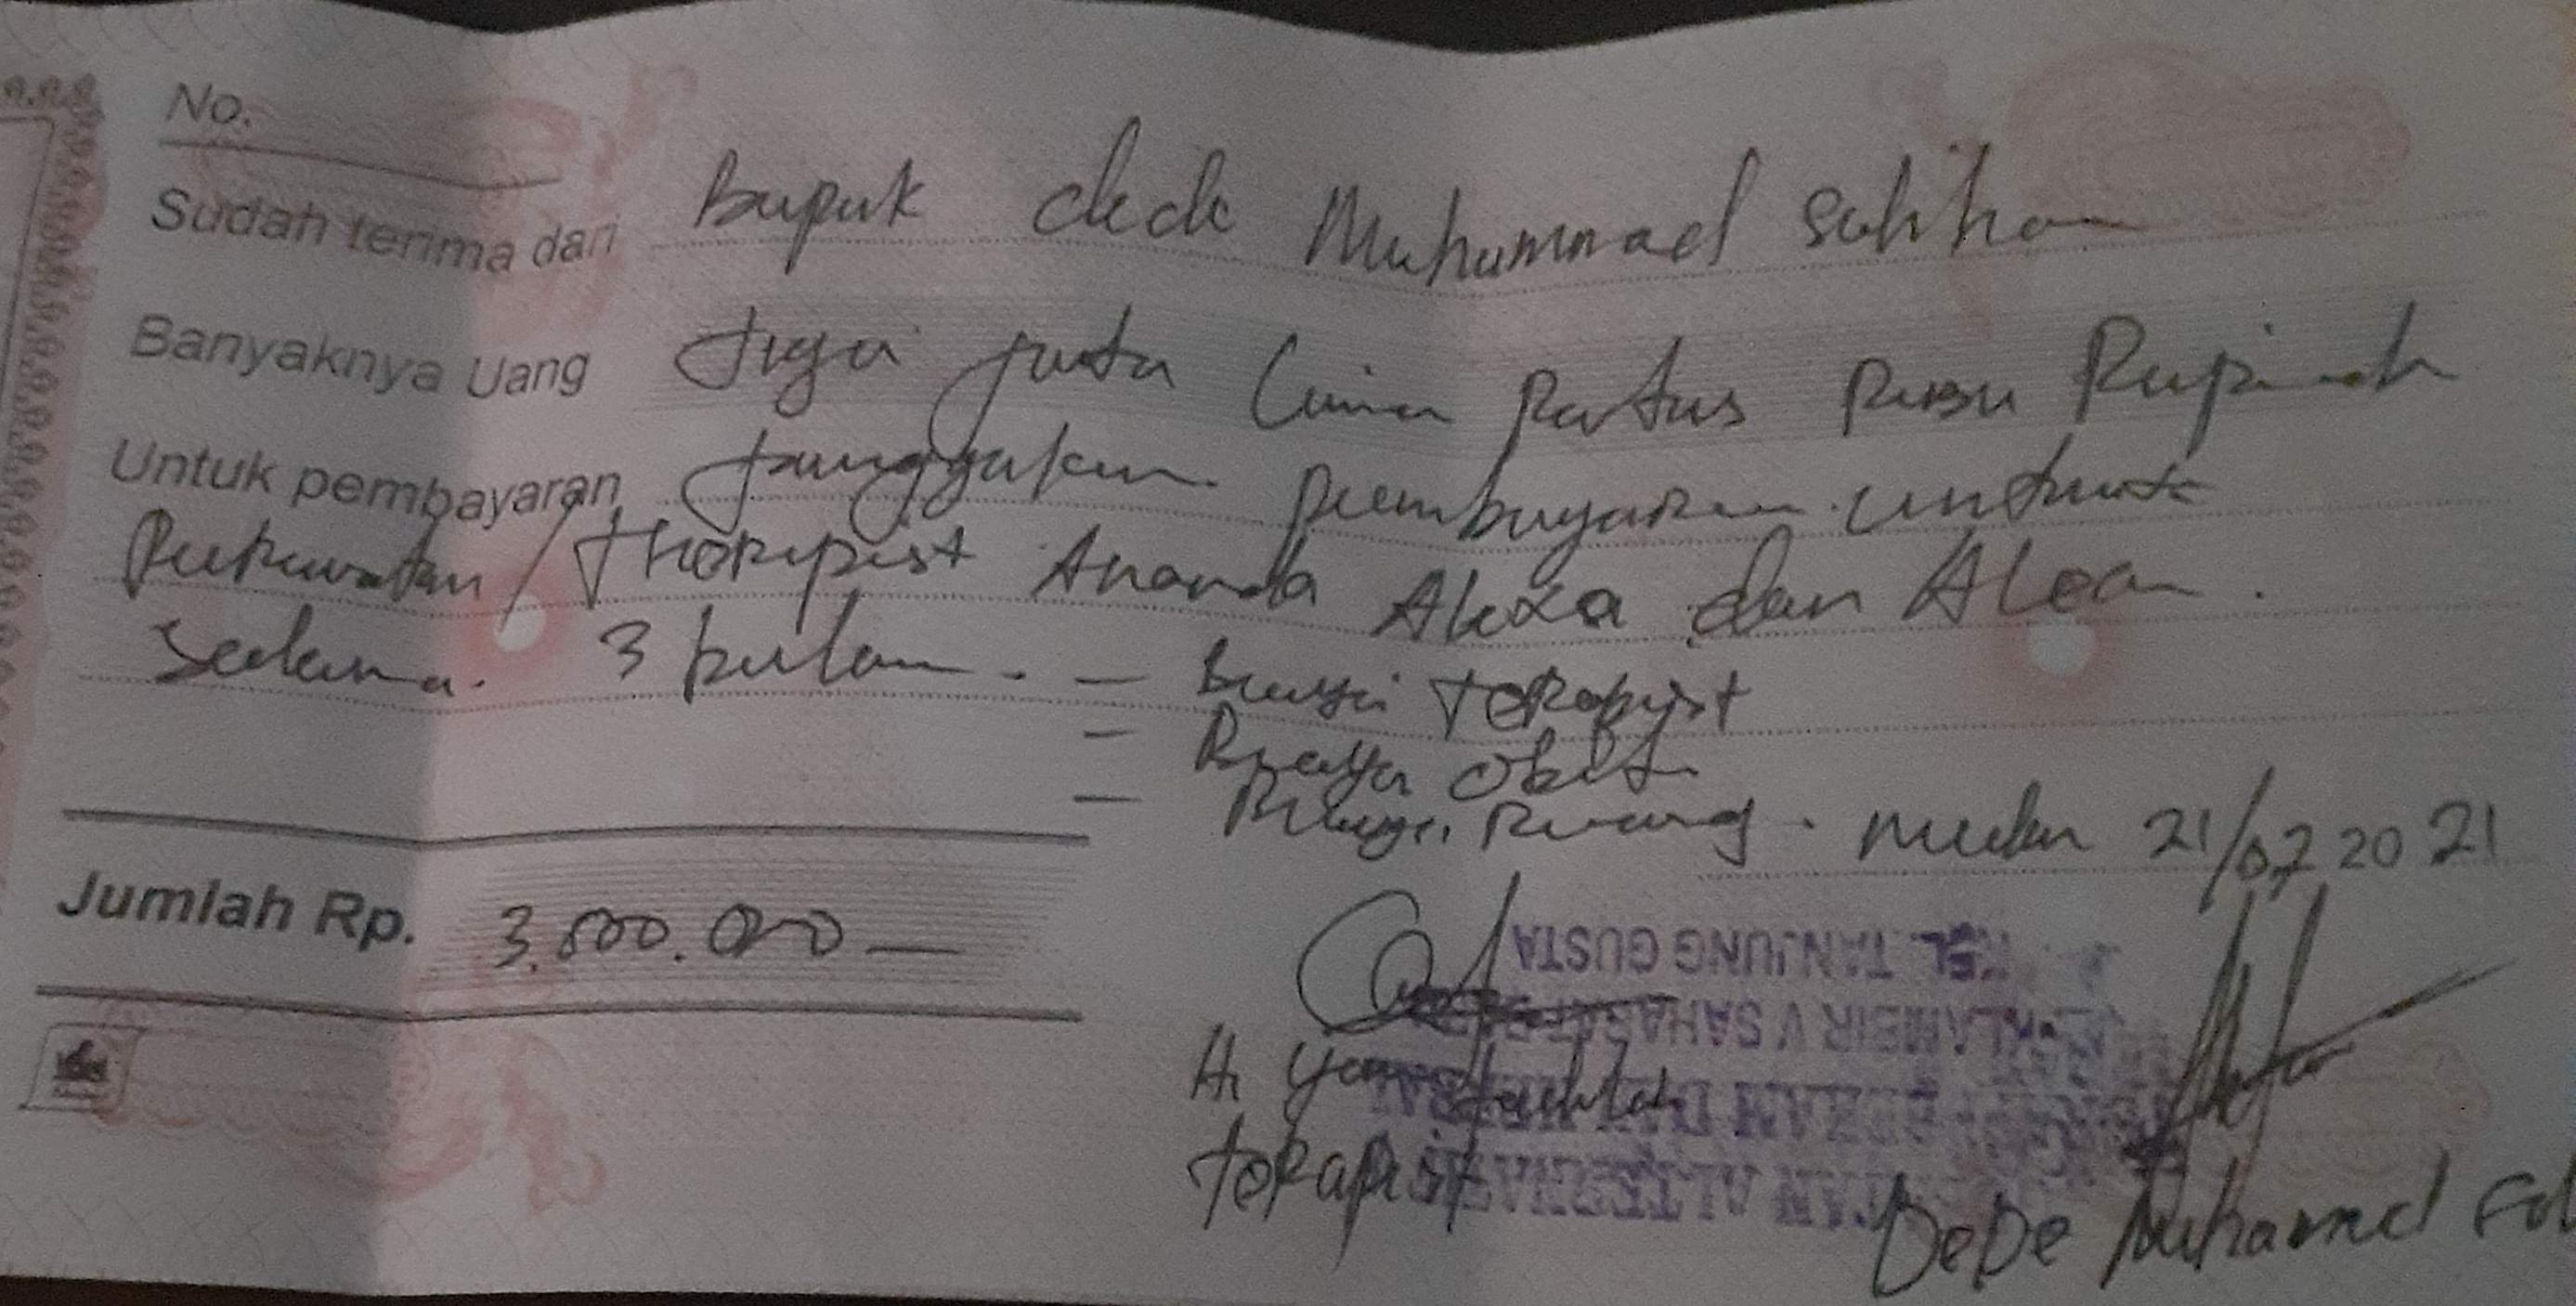 No.
Sudah terima dari Bapak dede Muhammad Solihan
Banyaknya Uang tiga juta lima Ratus Ribu Rupiah
Untuk pembayaran tunggakan pembayaran untuk
Perawatan / Therapist Ananda Alexa dan
Selama 3 bulan. - Biaya terapist
- Biaya Obat
- Biaya Ruang. Medan 21/07 2021
Jumlah Rp. 3.500.000 —
TANJUNG GUSTA
KLAMBIR V
DAN
ALTERNATIF
terapist
DeDe Muhammad Sol